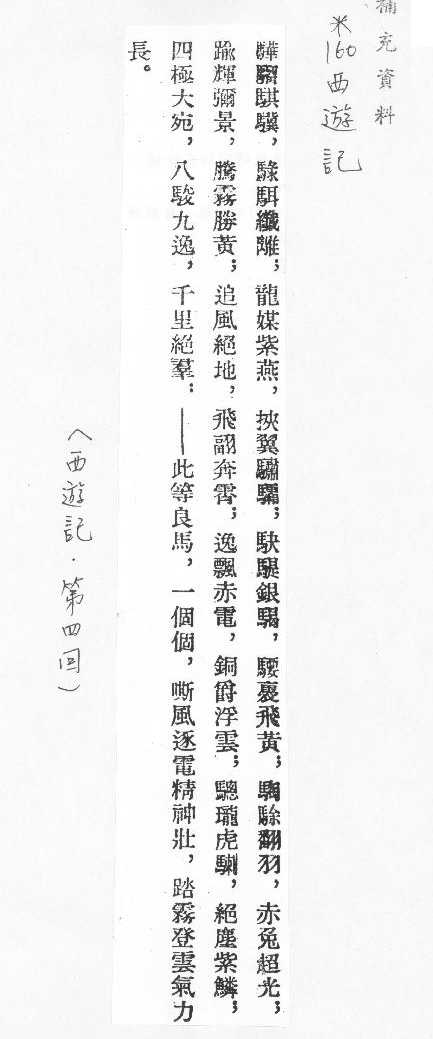 補充資料
※160西遊記
驊騮騏驥，騄駬纖離；龍媒紫燕，挾翼驌驦；駃騠銀騔，騕褭飛黃；騊駼翻羽，赤兔超光；
踰輝彌景，騰霧勝黃；追風絕地，飛翮奔霄；逸飄赤電，銅爵浮雲；驄瓏虎，絕塵紫鱗；
四極大宛，八駿九逸，千里絕羣：——此等良馬，一個個，嘶風逐電精神壯，踏霧登雲氣力
長。
〈西遊記．第四回〉